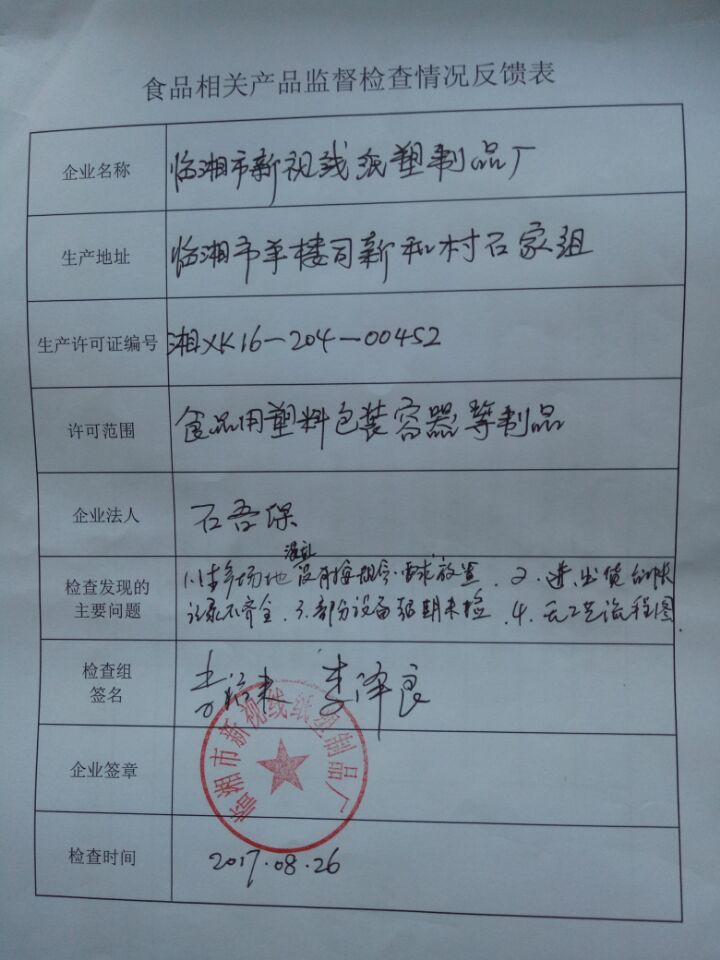 食品相关产品监督检查情况反馈表
企业名称 临湘市新视线纸塑制品厂
生产地址 临湘市羊楼司新和村石家组
生产许可证编号 湘XK16-204-00452
许可范围 食品用塑料包装容器等制品
企业法人 石吾保
检查发现的
主要问题
混乱
场地 没有按规定要求放置. 2. 进、出货台账
记录不齐全. 3. 部分设备超期未检. 4. 无工艺流程图.
检查组
签名
李泽良
企业签章
临湘市新视线纸塑制品厂
检查时间 2017.08.26